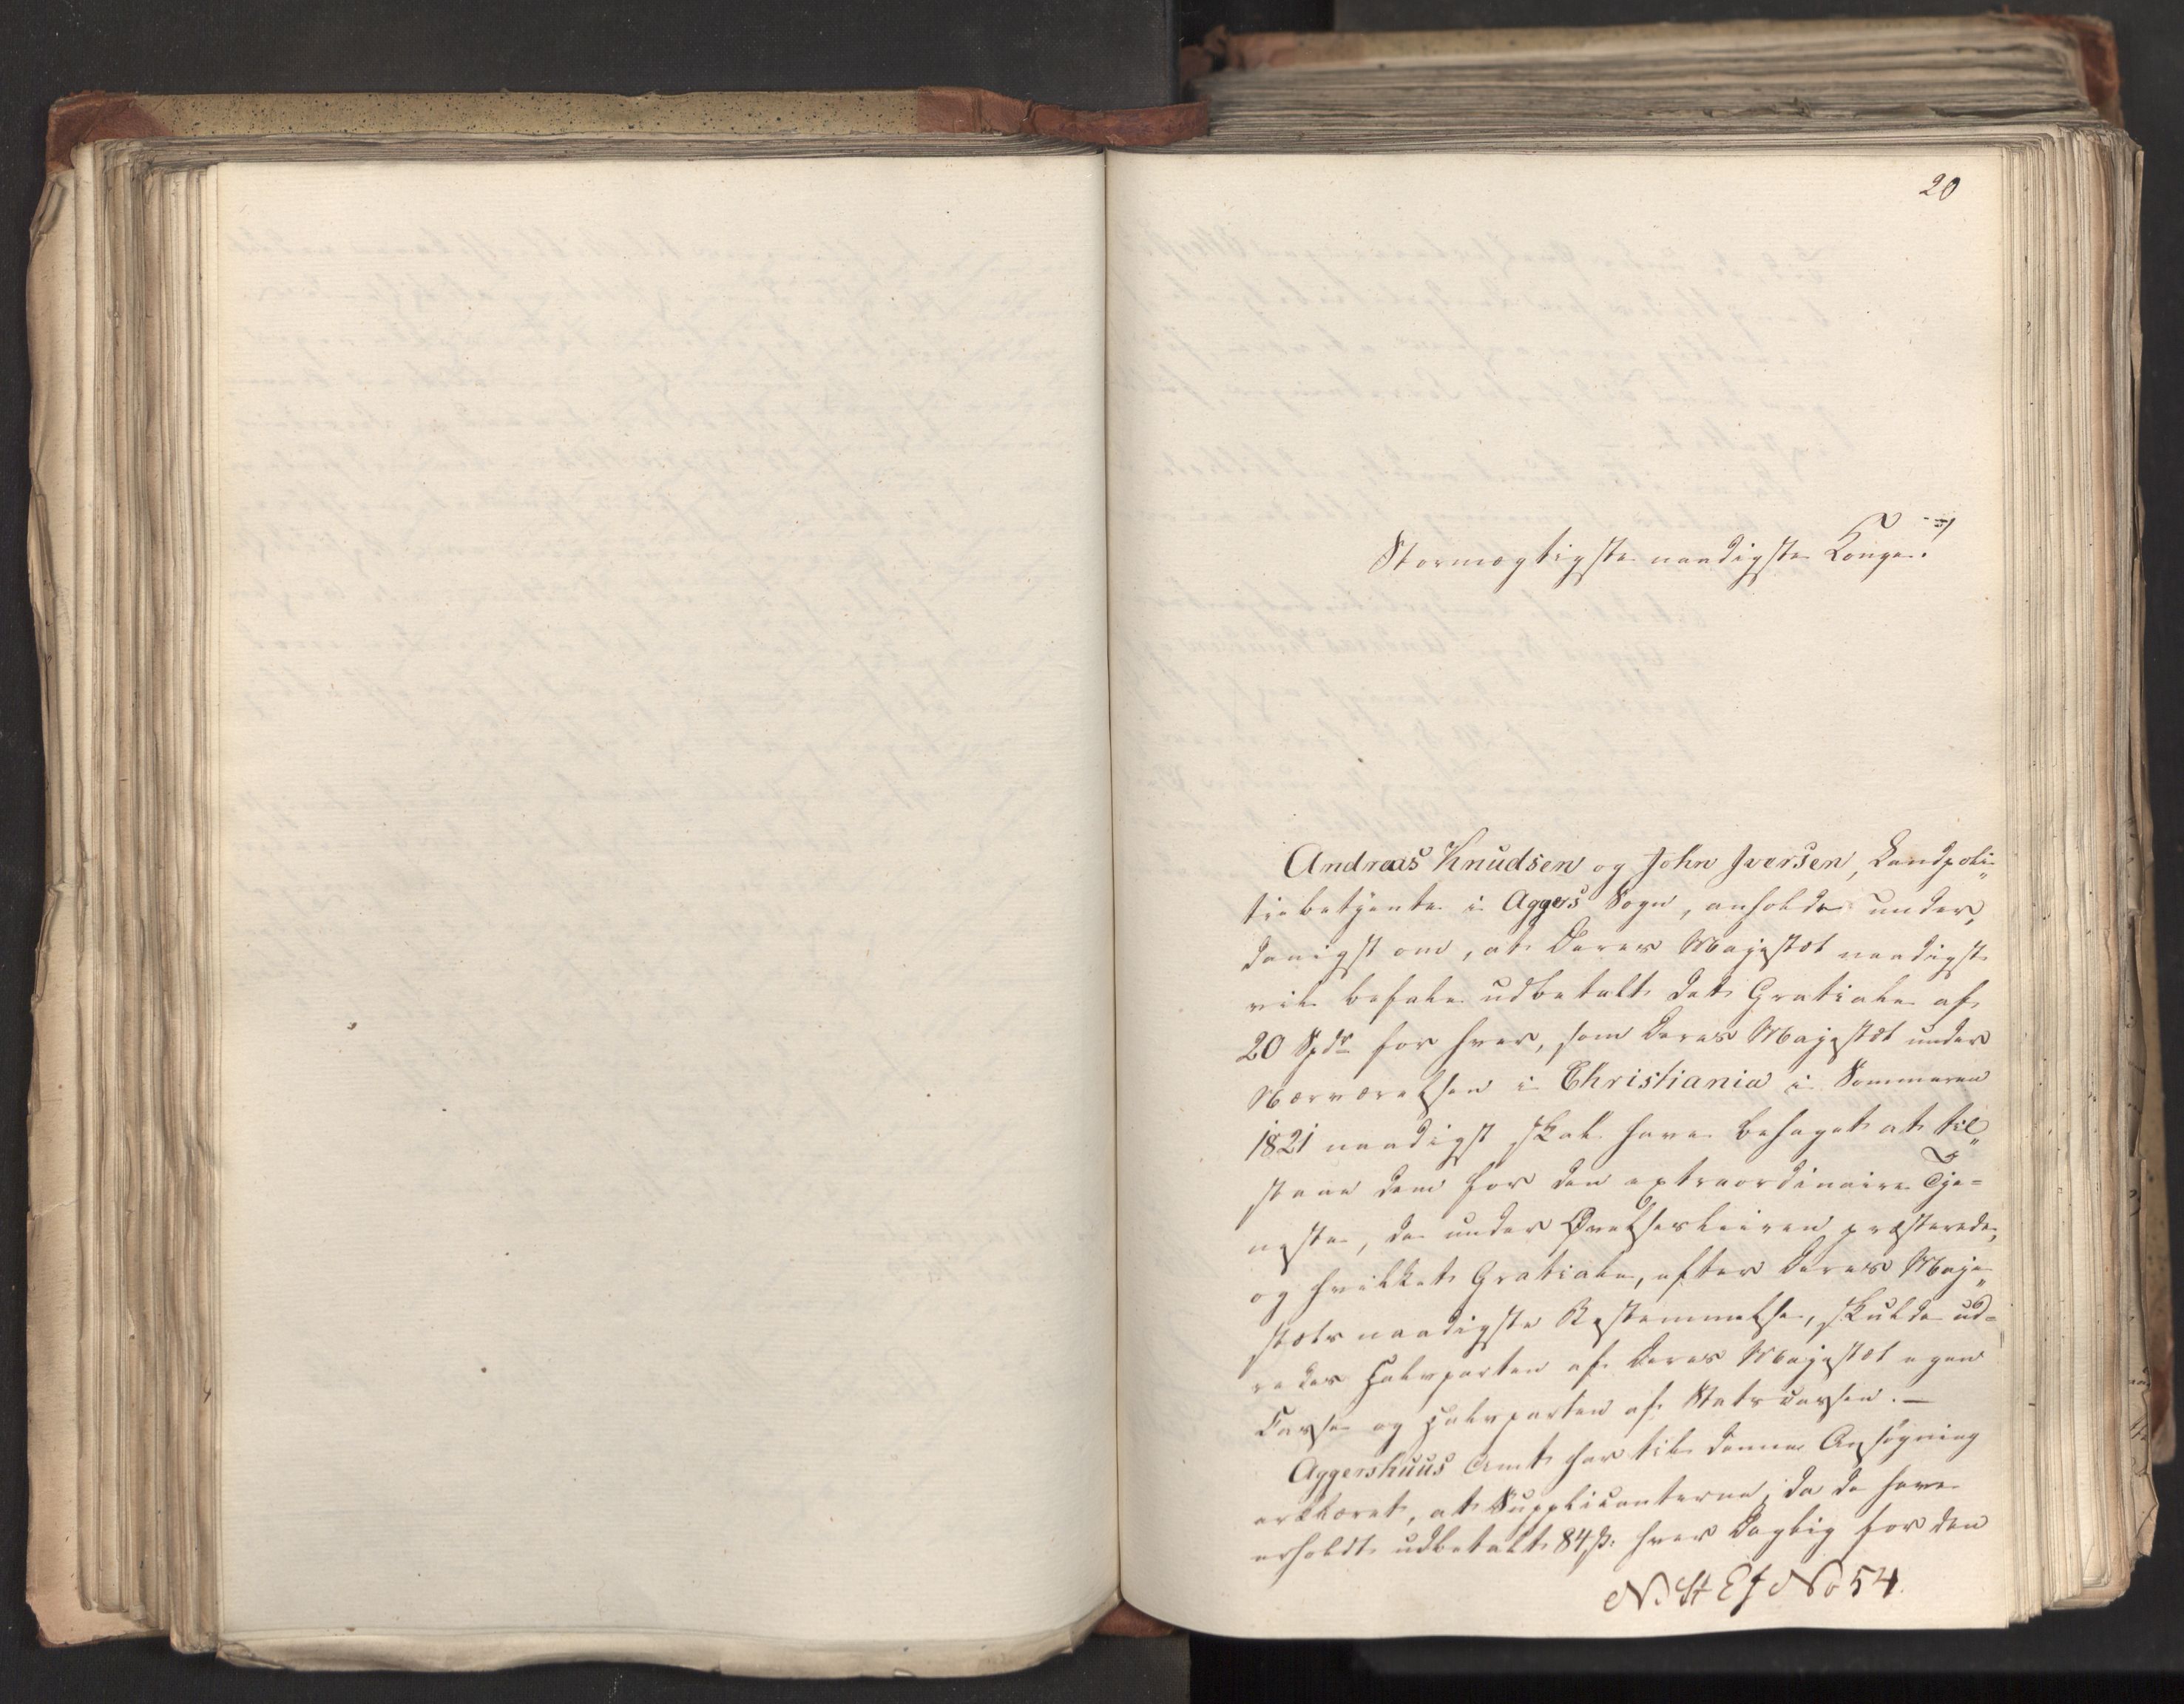 20
Stormægtigste naadigste Konge!
Andreas Knudsen og John Iversen, Landpoli„
tiebetjente i Aggers Sogn, anholde under„
danigst om, at Deres Majestæt naadigst
vil befale udbetalt det Gratiale af
20 Spdr for hver, som Deres Majestæt under
Nærværelsen i Christiania i Sommeren
1821 naadigst skal have behaget at til„
staae dem for den extraordinaire Tje=
neste, de under Øvelsesleiren præsterede,
og hvilket Gratiale, efter Deres Maje„
stæts naadigste Bestemmelse, skulde ud=
redes Halvparten af Deres Majestæt egen
Casse og Halvparten af Statscassen. —
Aggershuus Amt har til denne Ansøgning
erklæret, at Supplicanterne, da de have
erholdt udbetalt 84 ß. hver daglig for den
N. St Ef No 54.